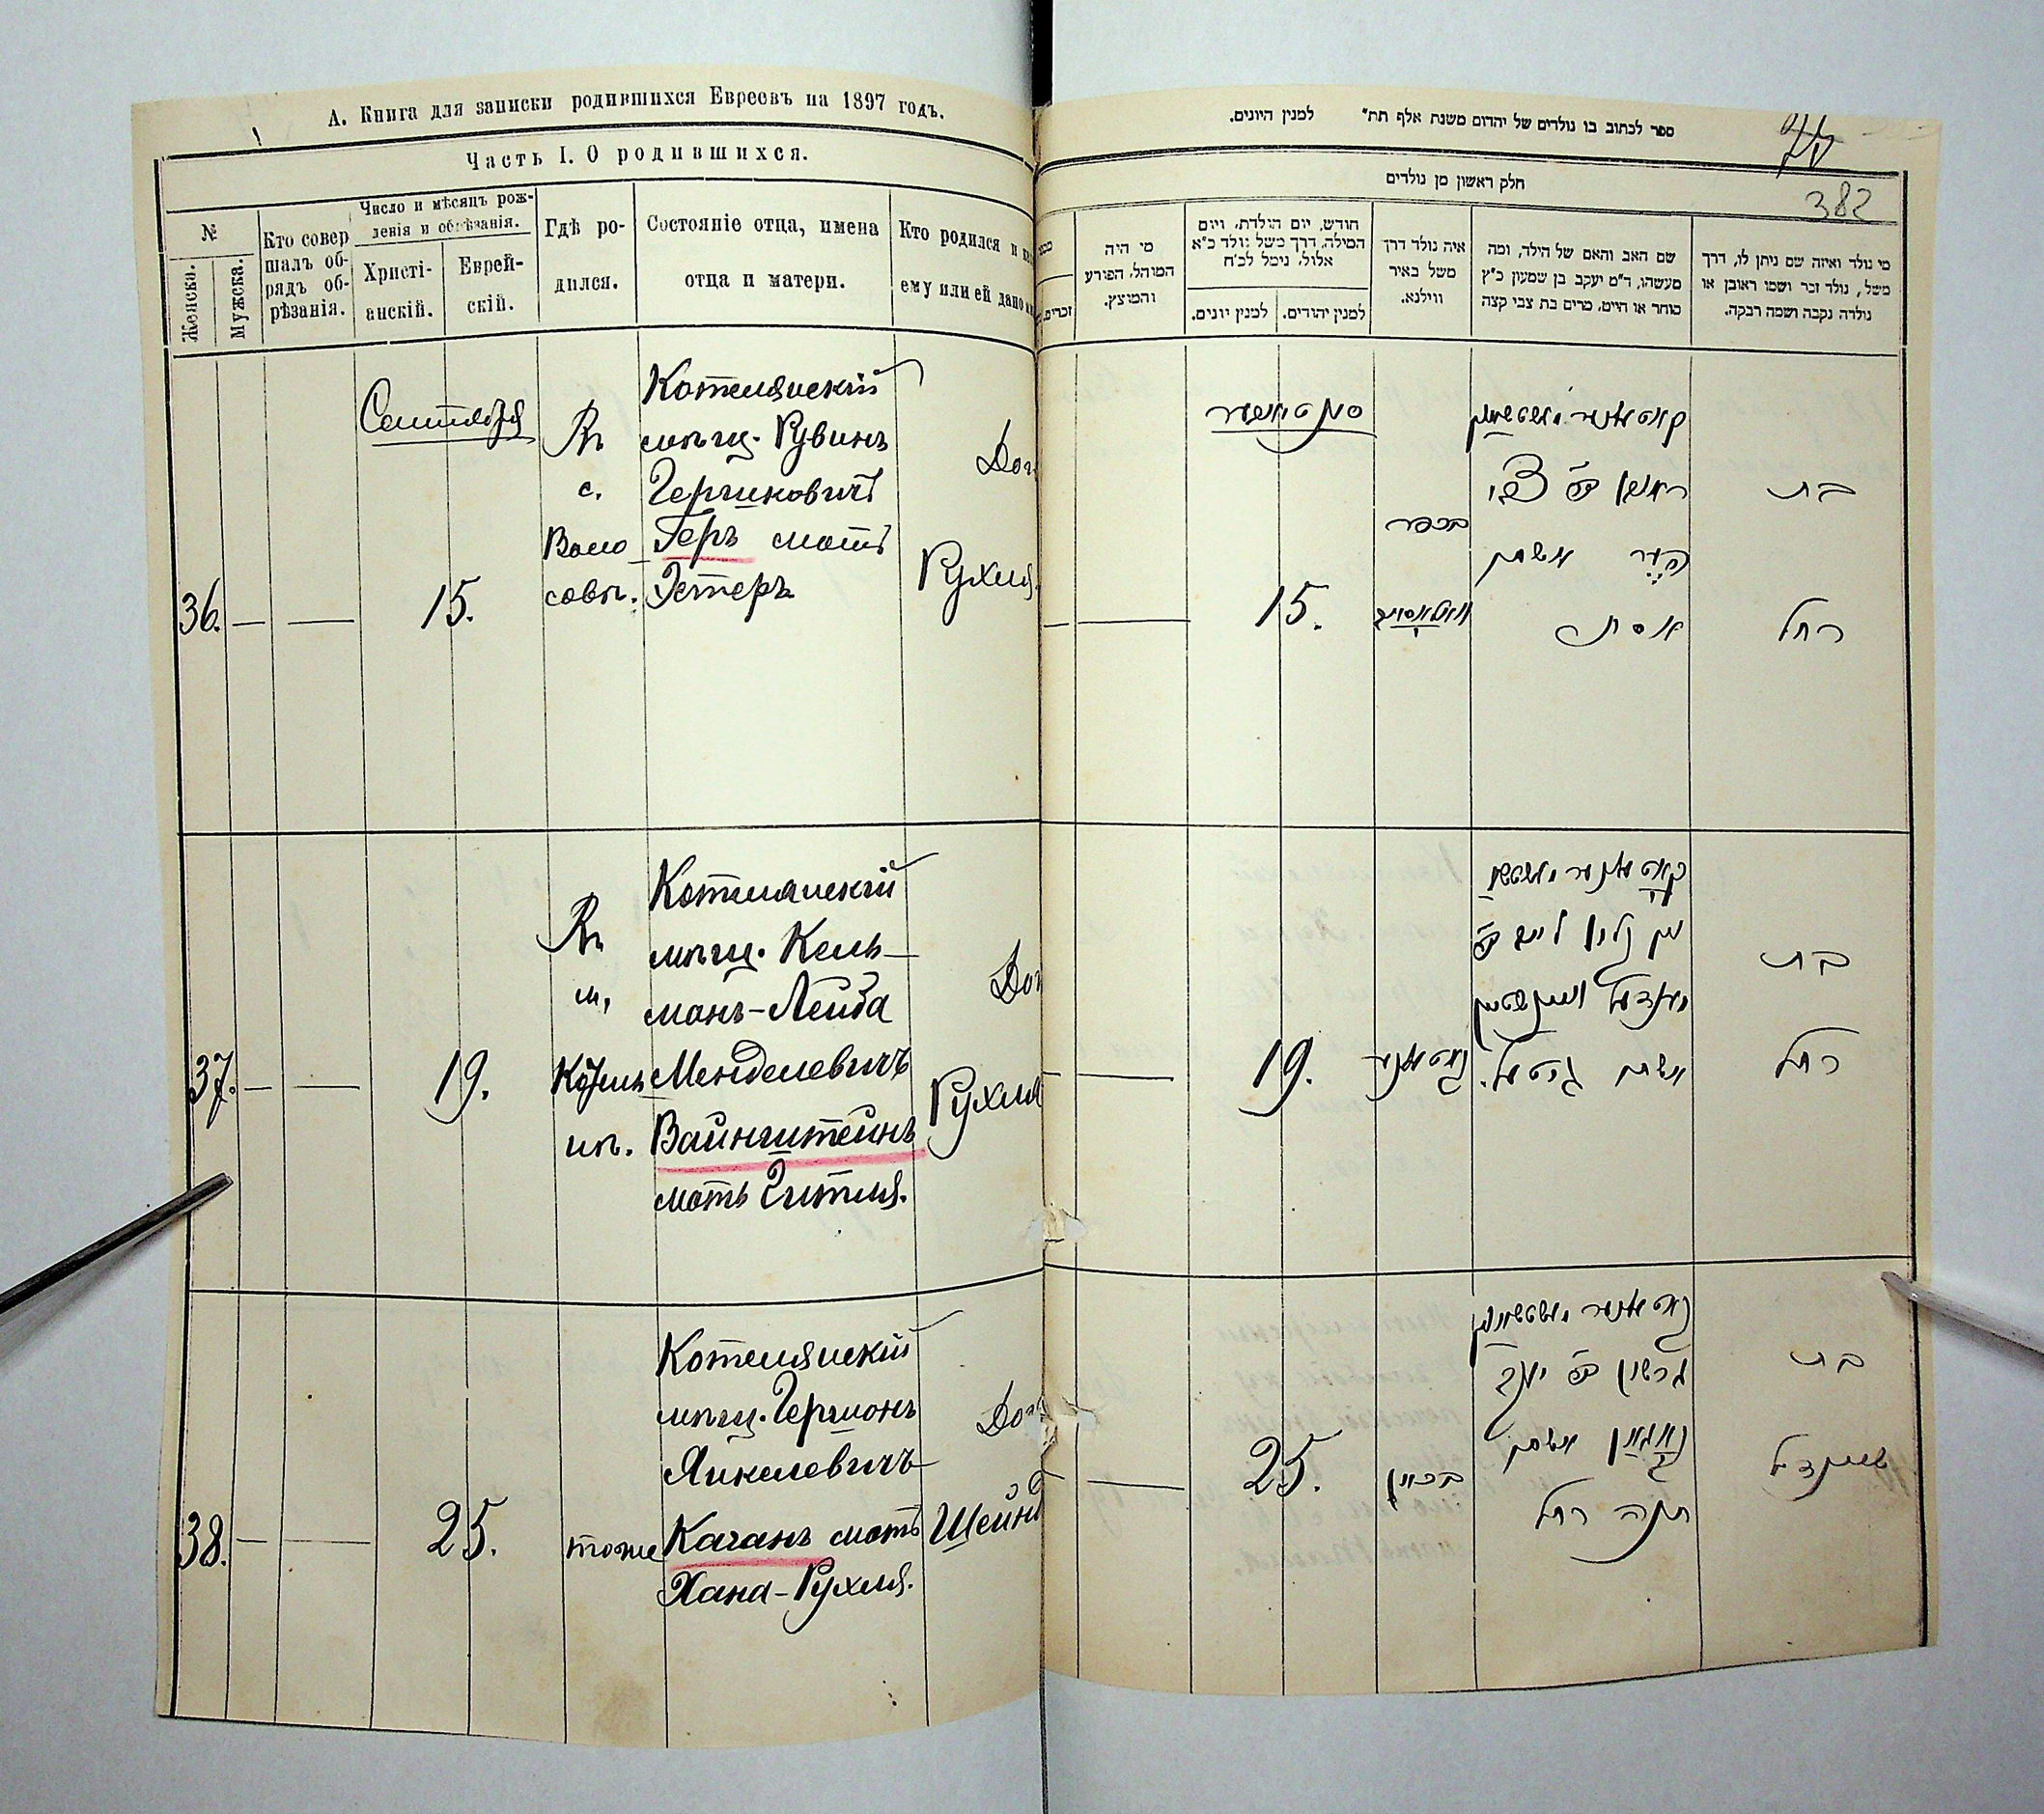 А. Книга для записки родившихся Евреевъ на 1897 годъ.
Часть I. О родившихся.
№
Женска.
Мужска.
Кто совер
шалъ об-
рядъ об-
рѣзанія.
Число и мѣсяцъ рож-
денія и обрѣзанія.
Христі-
анскій.
Еврей-
скій.
Гдѣ ро-
дился.
Состояніе отца, имена
отца и матери.
Кто родился и
ему или ей дано
36.
—
—
Сентября
15.
Въ
с.
Воло
совъ.
Котелянскій
мѣщ. Рувинъ
Гершковичъ
Геръ мать
Эстеръ
Доч
Рухля.
37.
—
—
19.
Въ
м.
Котель
нѣ.
Котелянскій
мѣщ. Кель-
манъ-Лейба
Менделевичъ
Вайнштейнъ
мать Гитля.
Доч
Рухля
38.
—
—
25.
тоже
Котелянскій
мѣщ. Гершонъ
Янкелевичъ
Каганъ мать
Хана-Рухля.
Доч
Шейнд
ספר לכתוב בו נולדים של יהדום משנת אלף תת״ למנין היונים.
382
חלק ראשון מן נולדים
מי נולד ואיזה שם ניתן לו, דרך
משל, נולד זכר ושמו ראובן או
נולדה נקבה ושמה רבקה.
שם האב והאם של הילד, ומה
מעשהו, ד״מ יעקב בן שמעון כ״ץ
סוחר או חייט, מרים בת צבי קצה
איה נולד דרך
משל באיר
ווילנא.
חודש, יום הולדת, ויום
המילה, דרך משל נולד כ״א
אלול, נימל לכ״ח
למנין יהודים.
למנין יונים.
מי היה
המוהל, הפורע
והמוצץ.
זכרים.
בת
רחל
ראובן
צבי
אסתר
בכפר
15.
—
—
בת
רחל
19.
—
בת
שיינדל
גרשון
יעקב
חנה רחל
25.
—